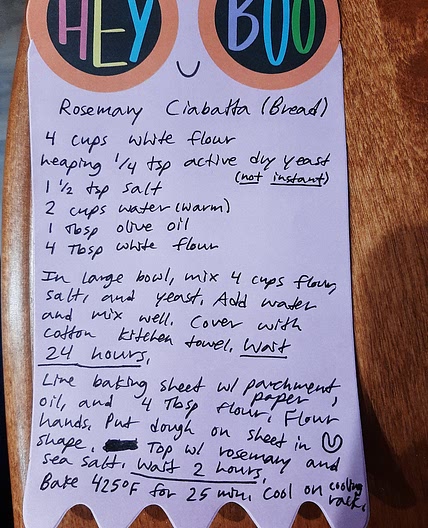 HEY BOO
Rosemary Ciabatta (Bread)
4 cups white flour
heaping 1/4 tsp active dry yeast
(not instant)
1 1/2 tsp salt
2 cups water (warm)
1 Tbsp olive oil
4 Tbsp white flour
In large bowl, mix 4 cups flour,
salt, and yeast. Add water
and mix well. Cover with
cotton kitchen towel. Wait
24 hours.
Line baking sheet w/ parchment
paper,
oil, and 4 Tbsp flour. Flour
hands. Put dough on sheet in
shape. Top w/ rosemary and
sea salt. Wait 2 hours.
Bake 425°F for 25 min. Cool on cooling
rack.